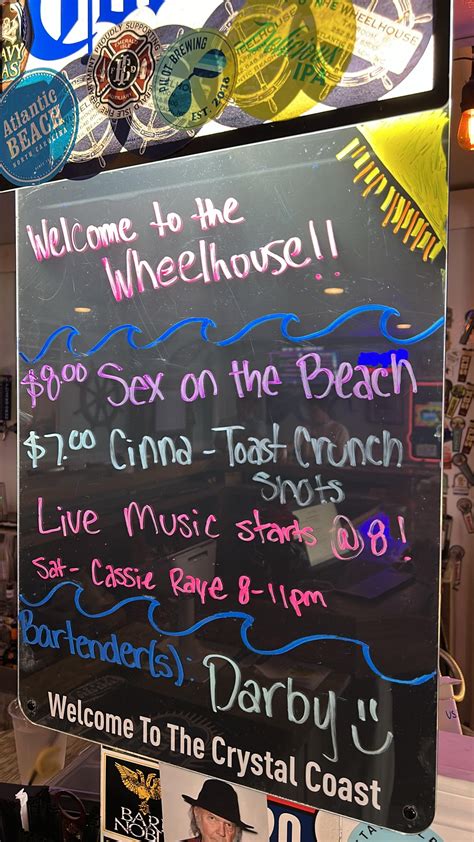 NAVY
PROUDLY SUPPORTING
THE WHEELHOUSE
PILOT BREWING
EST. 2018
IPA
Atlantic
BEACH
NORTH CAROLINA
Welcome to the
Wheelhouse!!
$8.00 Sex on the Beach
$7.00 Cinna-Toast Crunch
Shots
Live Music starts @ 8!
Sat- Cassie Raye 8-11pm
Bartender(s): Darby
Welcome To The Crystal Coast